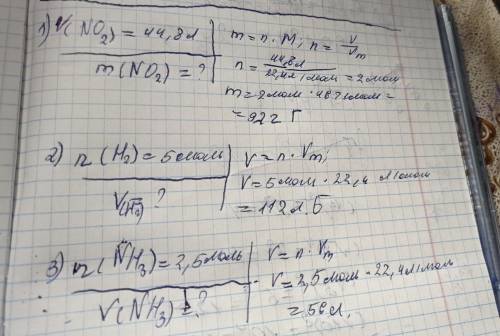 1) V(NO₂) = 44,8л
m(NO₂) = ?
m = n · M; n = V/Vm
n = 44,8л / 22,4л/моль = 2моль
m = 2моль · 46г/моль =
= 92г
2) n(H₂) = 5моль
V(H₂) ?
V = n · Vm;
V = 5моль · 22,4 л/моль
= 112л.
3) n(NH₃) = 2,5моль
V(NH₃) = ?
V = n · Vm
V = 2,5моль · 22,4л/моль
= 56л.